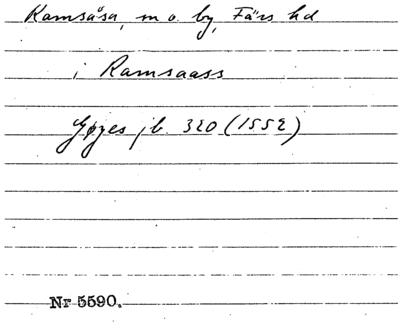 Ramsåsa, m o. by, Färs hd
i Ramsaass
Gøyes jb. 320 (1552)
Nr 5590.